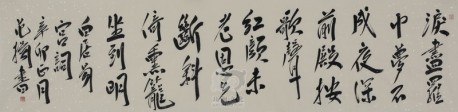 淚盡羅
巾夢不
成夜深
前殿按
歌聲
紅顏未
老恩先
斷斜
倚熏籠
坐到明
白居易
宮詞
辛卯正月
書